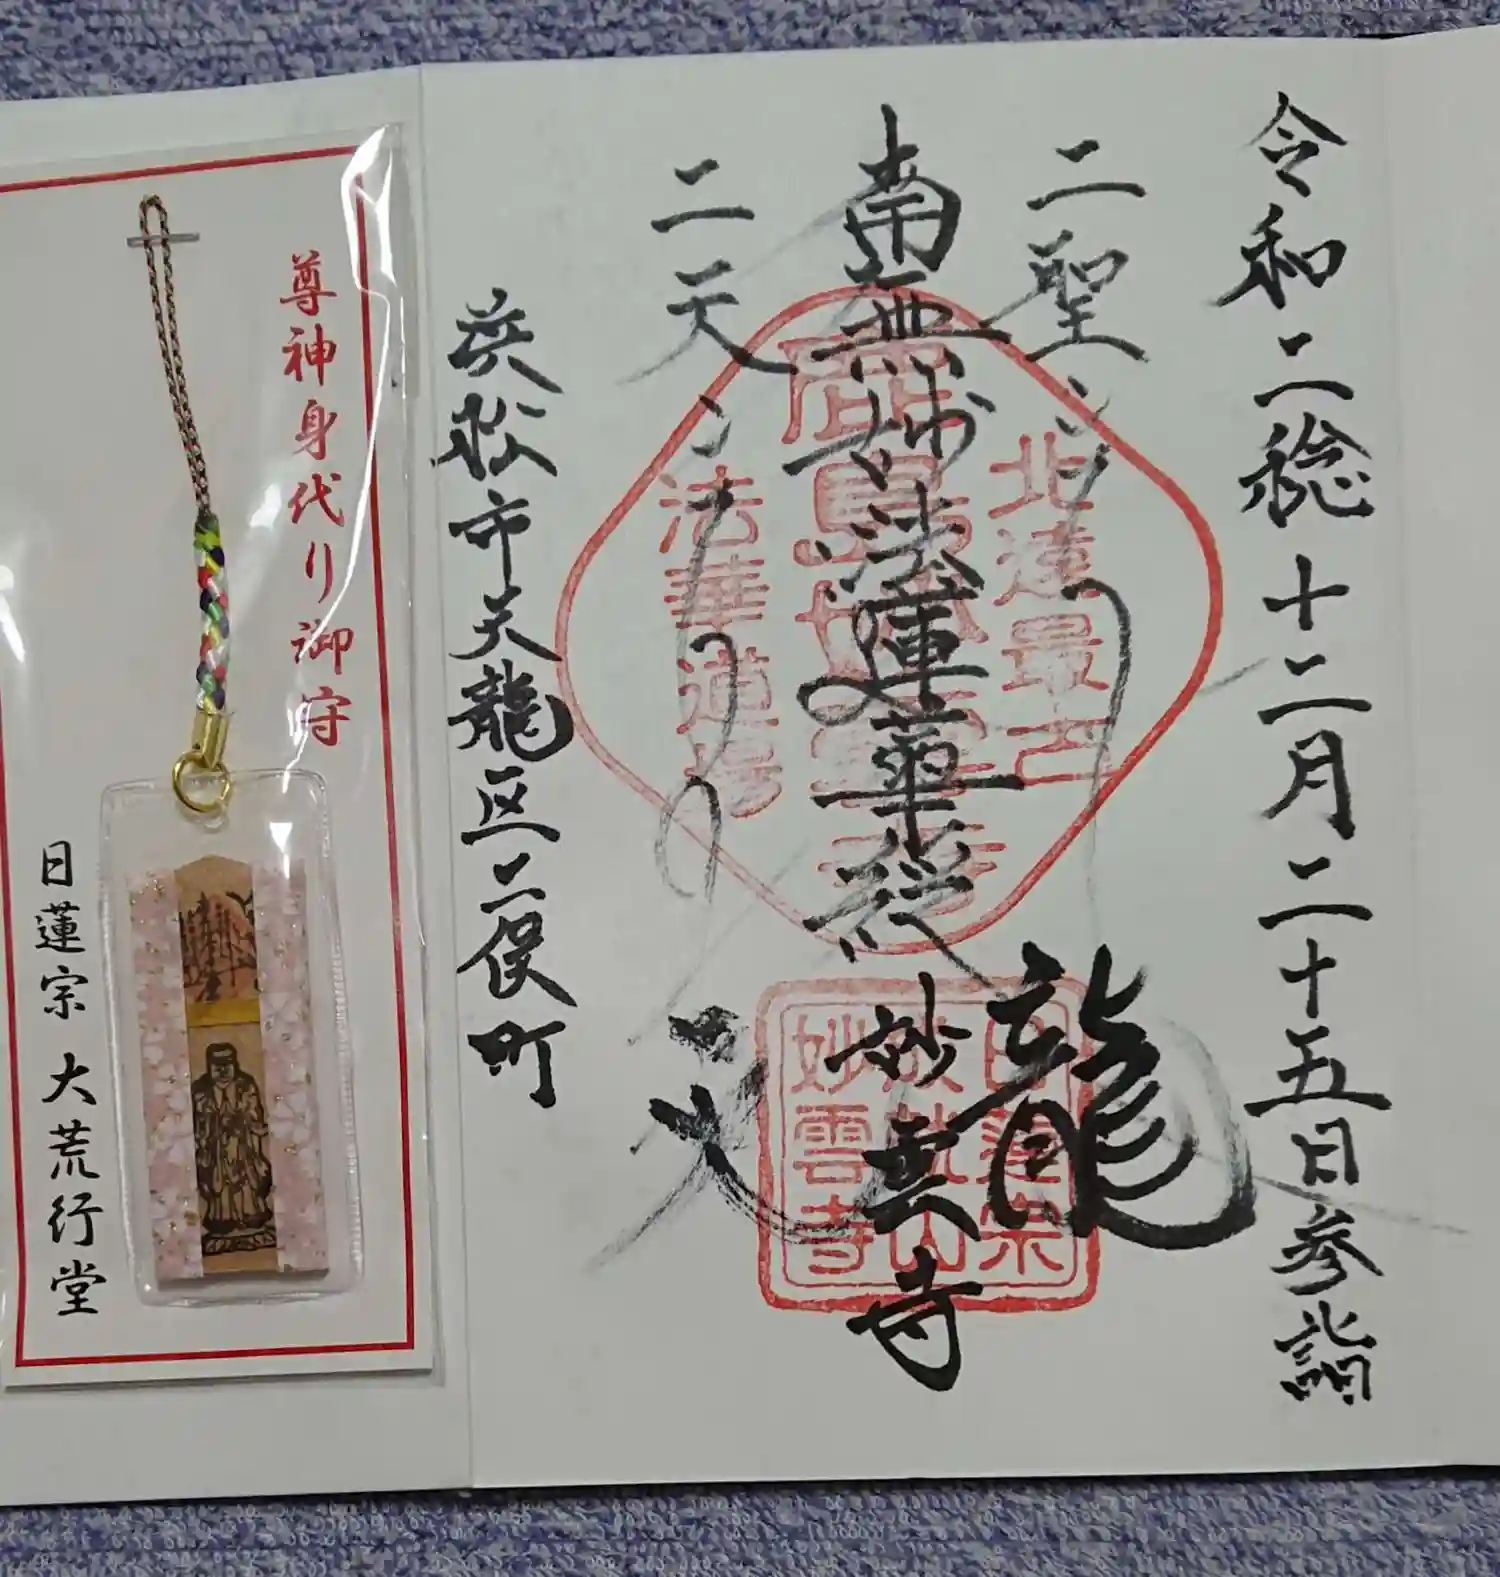 令和二稔十二月二十五日参詣
二聖
南無妙法蓮華経
二天
龍
妙雲寺
浜松市天龍区二俣町
北遠最古
法華道場
日蓮宗
妙雲寺
尊神身代り御守
日蓮宗 大荒行堂